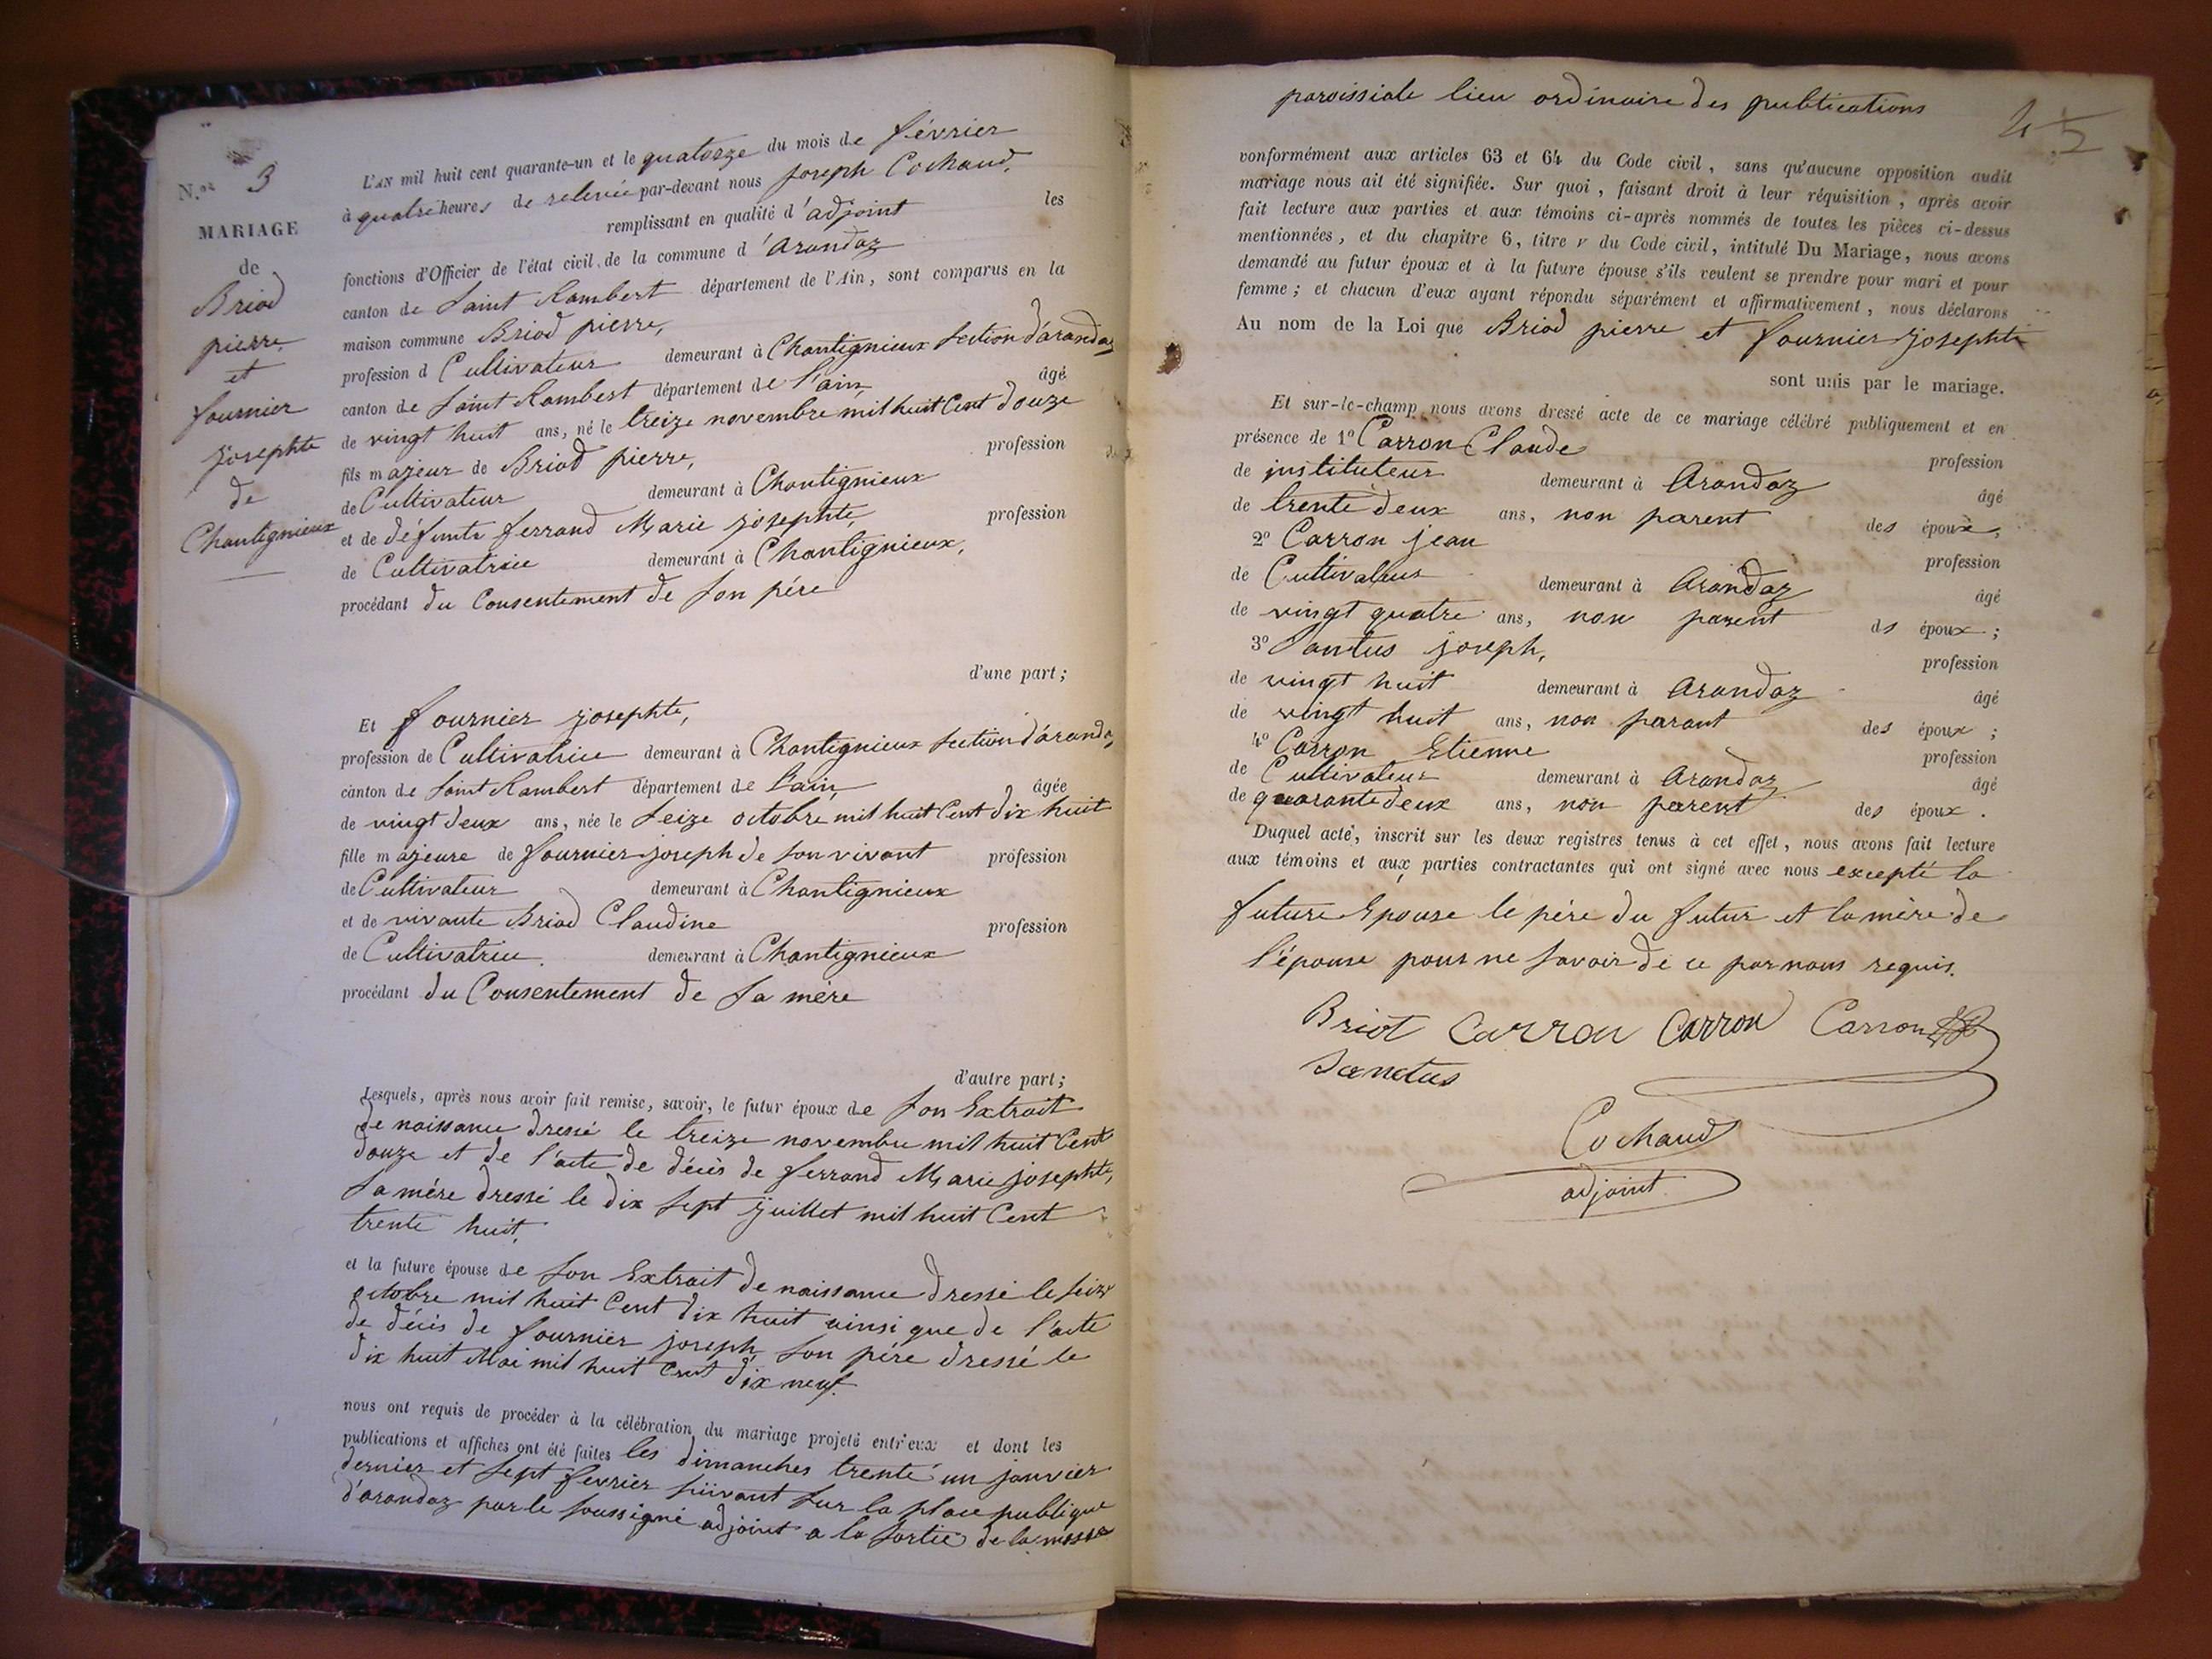 N.os 3
MARIAGE
de
Briod
pierre
et
fournier
josephte
de
Chantignieux
L'AN mil huit cent quarante-un et le quatorze du mois de février
à quatre heures de relevée par-devant nous joseph Cochaud,
remplissant en qualité d'adjoint les
fonctions d'Officier de l'état civil de la commune d'Arandaz
canton de Saint Rambert département de l'Ain, sont comparus en la
maison commune Briod pierre,
profession d Cultivateur demeurant à Chantignieux Section d'arandaz
canton de Saint Rambert département de l'ain, âgé
de vingt huit ans, né le treize novembre mil huit Cent douze
fils majeur de Briod pierre, profession
de Cultivateur demeurant à Chantignieux
et de défunte ferrand Marie josephte, profession
de Cultivatrice demeurant à Chantignieux,
procédant du Consentement de son pére
d'une part;
Et fournier josephte,
profession de Cultivatrice demeurant à Chantignieux Section d'arandaz
canton de Saint Rambert département de l'ain, âgée
de vingt deux ans, née le Seize octobre mil huit Cent dix huit
fille majeure de fournier joseph de son vivant profession
de Cultivateur demeurant à Chantignieux
et de vivante Briod Claudine profession
de Cultivatrice. demeurant à Chantignieux
procédant du Consentement de Sa mére
d'autre part;
Lesquels, après nous avoir fait remise, savoir, le futur époux de son Extrait
de naissance dressé le treize novembre mil huit Cent
douze et de l'acte de décès de ferrand Marie josephte,
Sa mére dressé le dix sept juillet mil huit Cent
trente huit,
et la future épouse de son Extrait de naissance dressé le seize
octobre mil huit Cent dix huit ainsi que de l'acte
de décès de fournier joseph son pére dressé le
dix huit Mai mil huit Cent dix neuf.
nous ont requis de procéder à la célébration du mariage projeté entr'eux et dont les
publications et affiches ont été faites les dimanches trente un janvier
dernier et sept fevrier suivant sur la place publique
d'arandaz par le soussigné adjoint a la sortie de la messe
paroissiale lieu ordinaire des publications
45
conformément aux articles 63 et 64 du Code civil, sans qu'aucune opposition audit
mariage nous ait été signifiée. Sur quoi, faisant droit à leur réquisition, après avoir
fait lecture aux parties et aux témoins ci-après nommés de toutes les pièces ci-dessus
mentionnées, et du chapitre 6, titre v du Code civil, intitulé Du Mariage, nous avons
demandé au futur époux et à la future épouse s'ils veulent se prendre pour mari et pour
femme; et chacun d'eux ayant répondu séparément et affirmativement, nous déclarons
Au nom de la Loi que Briod pierre et fournier josephte
sont unis par le mariage.
Et sur-le-champ nous avons dressé acte de ce mariage célébré publiquement et en
présence de 1º Carron Claude profession
de instituteur demeurant à Arandaz âgé
de trente deux ans, non parent des époux,
2º Carron jean profession
de Cultivateur demeurant à Arandaz âgé
de vingt quatre ans, non parent ds époux;
3º Santus joseph, profession
de vingt huit demeurant à Arandaz âgé
de vingt huit ans, non parant des époux;
4º Carron Etienne profession
de Cultivateur demeurant à Arandaz âgé
de quarante deux ans, non parent des époux.
Duquel acte, inscrit sur les deux registres tenus à cet effet, nous avons fait lecture
aux témoins et aux parties contractantes qui ont signé avec nous excepté la
future Epouse le pére du futur et la mére de
l'épouse pour ne savoir de ce par nous requis.
Briot Carron Carron Carron
Sanctus
Cochaud
adjoint